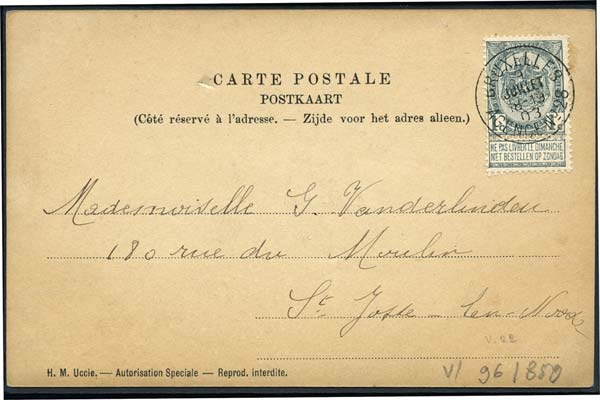 CARTE POSTALE
POSTKAART
(Côté réservé à l'adresse. — Zijde voor het adres alleen.)
BRUXELLES
JUILLET
03
28
NE PAS LIVRER LE DIMANCHE
NIET BESTELLEN OP ZONDAG
Mademoiselle G. Vanderlinden
180 rue du Moulin
St Josse-ten-Noode
V. 22
V/ 96/850
H. M. Uccle. — Autorisation Speciale — Reprod. interdite.